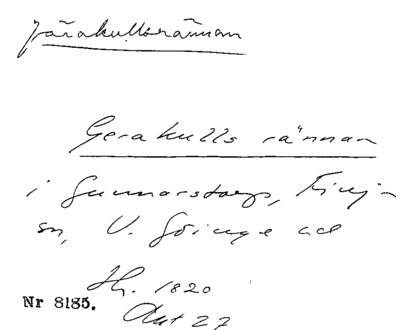 Järakullsrännan
Gerakulls rännan
i Gunnarstorp, Finja
sn, V. Göinge hd
Hf. 1820
Nr 8185.
Akt 27